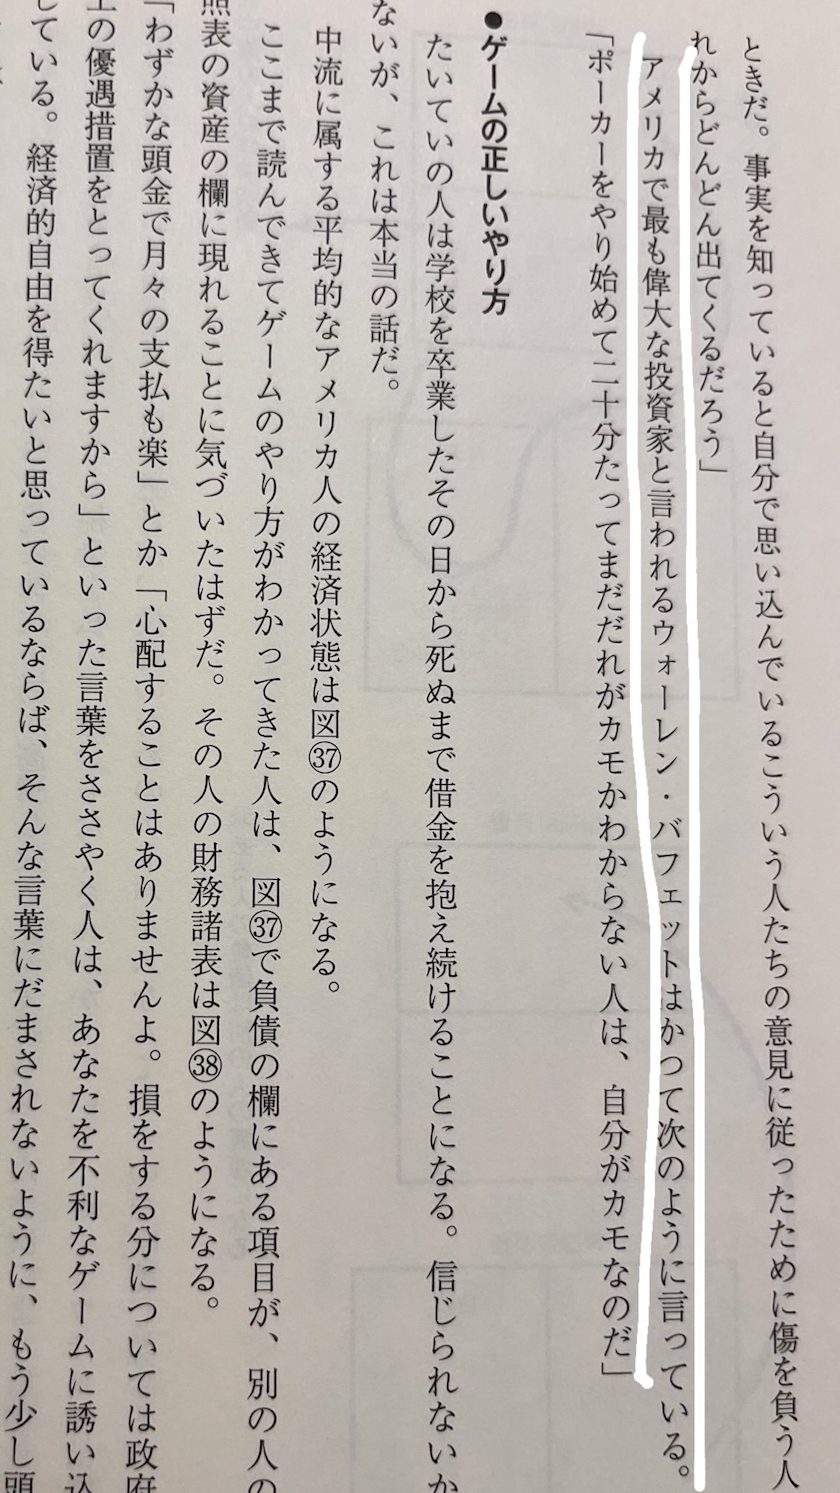 ときだ。事実を知っていると自分で思い込んでいるこういう人たちの意見に従ったために傷を負う人
れからどんどん出てくるだろう」
アメリカで最も偉大な投資家と言われるウォーレン・バフェットはかつて次のように言っている。
「ポーカーをやり始めて二十分たってまだだれがカモかわからない人は、自分がカモなのだ」
●ゲームの正しいやり方
たいていの人は学校を卒業したその日から死ぬまで借金を抱え続けることになる。信じられないか
ないが、これは本当の話だ。
中流に属する平均的なアメリカ人の経済状態は図㊲のようになる。
ここまで読んできてゲームのやり方がわかってきた人は、図㊲で負債の欄にある項目が、別の人の
照表の資産の欄に現れることに気づいたはずだ。その人の財務諸表は図㊳のようになる。
「わずかな頭金で月々の支払も楽」とか「心配することはありませんよ。損をする分については政府
上の優遇措置をとってくれますから」といった言葉をささやく人は、あなたを不利なゲームに誘い込
している。経済的自由を得たいと思っているならば、そんな言葉にだまされないように、もう少し頭